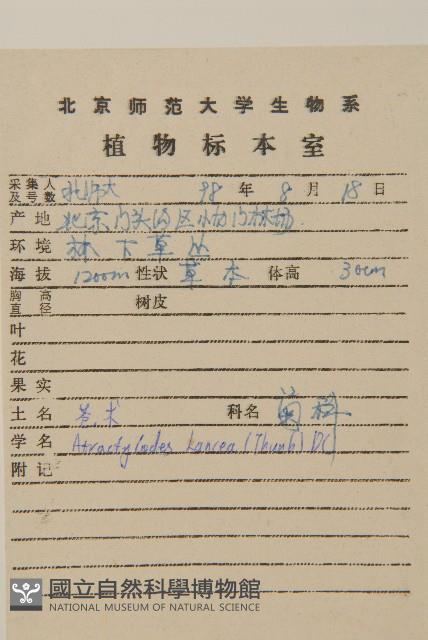 北京师范大学生物系
植物标本室
采集人及号数 北师大 98 年 8 月 18 日
产地 北京门头沟区小龙门林场
环境 林下草丛
海拔 1200m 性状 草本 体高 30cm
胸高直径 树皮
叶
花
果实
土名 苍术 科名 菊科
学名 Atractylodes Lancea (Thunb) DC
附记
國立自然科學博物館
NATIONAL MUSEUM OF NATURAL SCIENCE